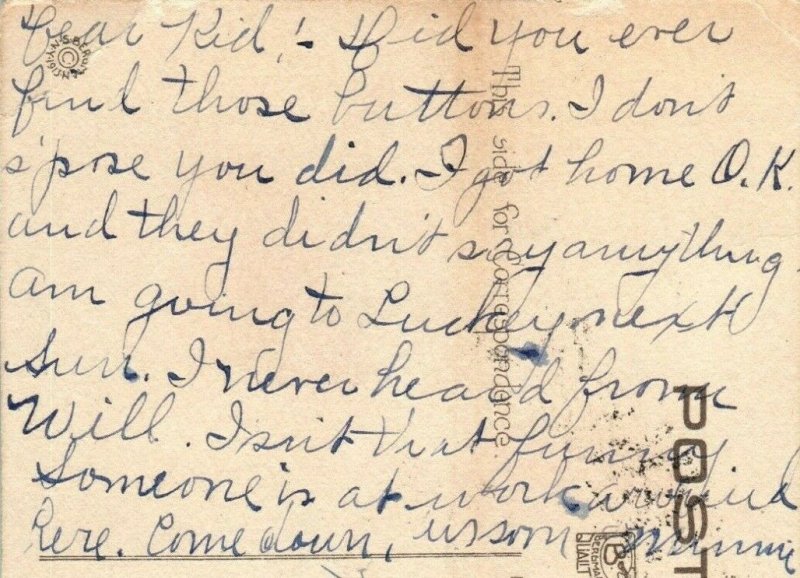 Dear Kid,! - Did you ever
find those buttons. I don't
s'pose you did. I got home O.K.
and they didn't say anything.
Am going to Luckey next
Sun. I never heard from
Will. Isn't that funny
Someone is at work around
here. Come down, us soon Minnie
This side for Correspondence.
POST